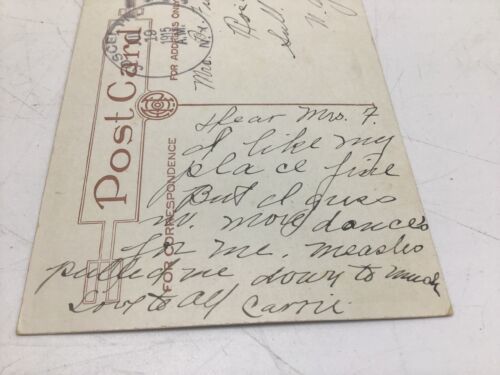 Post Card
FOR ADDRESS ONLY
FOR CORRESPONDENCE
19
1915
A.M.
Mrs
N.Y.
Dear Mrs. F.
I like my
place fine
But I guss
no more dances
for me. Measles
pulled me down to much
Love to All Carrie.